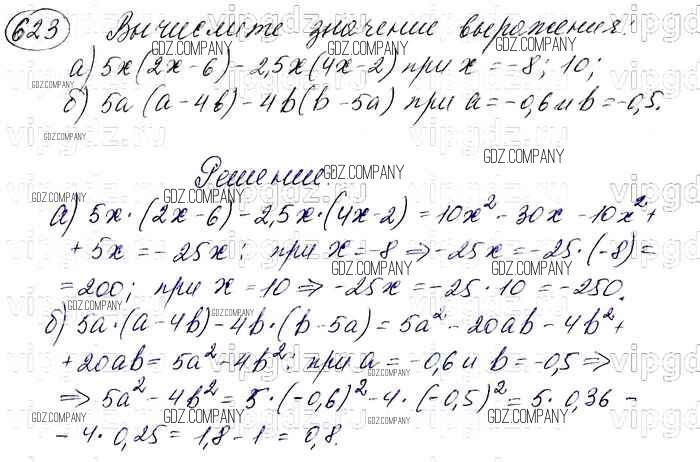 623 Вычислите значение выражения:
а) 5x(2x-6)-2,5x(4x-2) при x=-8; 10;
б) 5a(a-4b)-4b(b-5a) при a=-0,6 и b=-0,5.
Решение:
а) 5x·(2x-6)-2,5x·(4x-2)=10x²-30x-10x²+
+5x=-25x; при x=-8 ⇒ -25x=-25·(-8)=
=200; при x=10 ⇒ -25x=-25·10=-250.
б) 5a·(a-4b)-4b·(b-5a)=5a²-20ab-4b²+
+20ab=5a²-4b²; при a=-0,6 и b=-0,5 ⇒
⇒ 5a²-4b²=5·(-0,6)²-4·(-0,5)²=5·0,36-
-4·0,25=1,8-1=0,8.